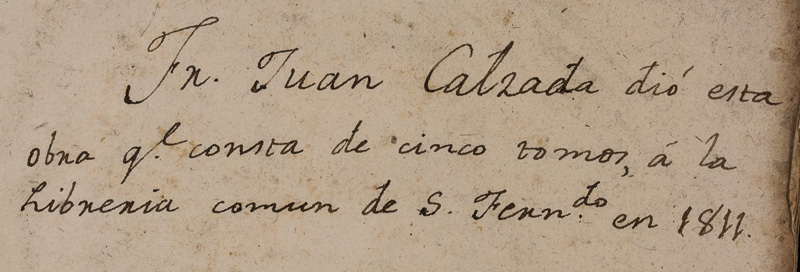 Fr. Juan Calzada dió esta
obra q.e consta de cinco tomos, á la
Libreria comun de S. Fern.do en 1811.